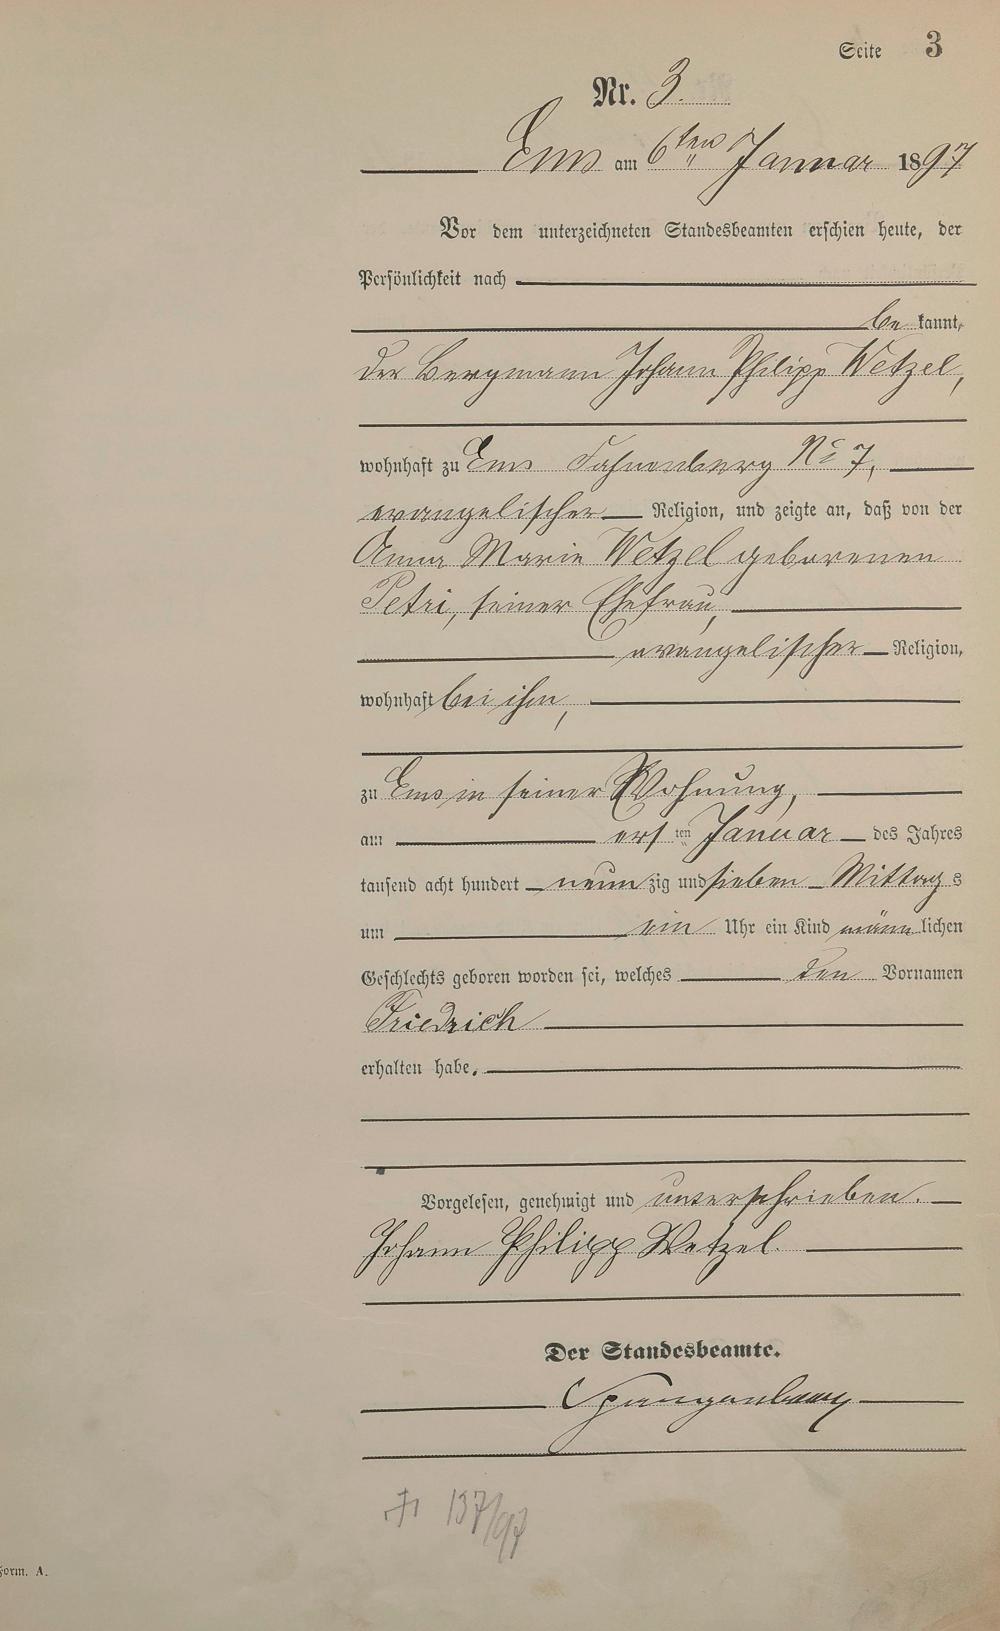 Seite 3
Nr. 3.
Ems am 6ten Januar 1897
Vor dem unterzeichneten Standesbeamten erschien heute, der
Persönlichkeit nach
be kannt,
der Bergmann Johann Philipp Wetzel,
wohnhaft zu Ems Fahnenberg No 7,
evangelischer Religion, und zeigte an, daß von der
Anna Marie Wetzel geborenen
Petri, seiner Ehefrau,
evangelischer Religion,
wohnhaft bei ihm,
zu Ems in seiner Wohnung,
am ersten Januar des Jahres
tausend acht hundert neunzig und sieben Mittags
um ein Uhr ein Kind männlichen
Geschlechts geboren worden sei, welches den Vornamen
Friedrich
erhalten habe.
Vorgelesen, genehmigt und unterschrieben.
Johann Philipp Wetzel.
Der Standesbeamte.
Spangenberg
137/97
Form. A.